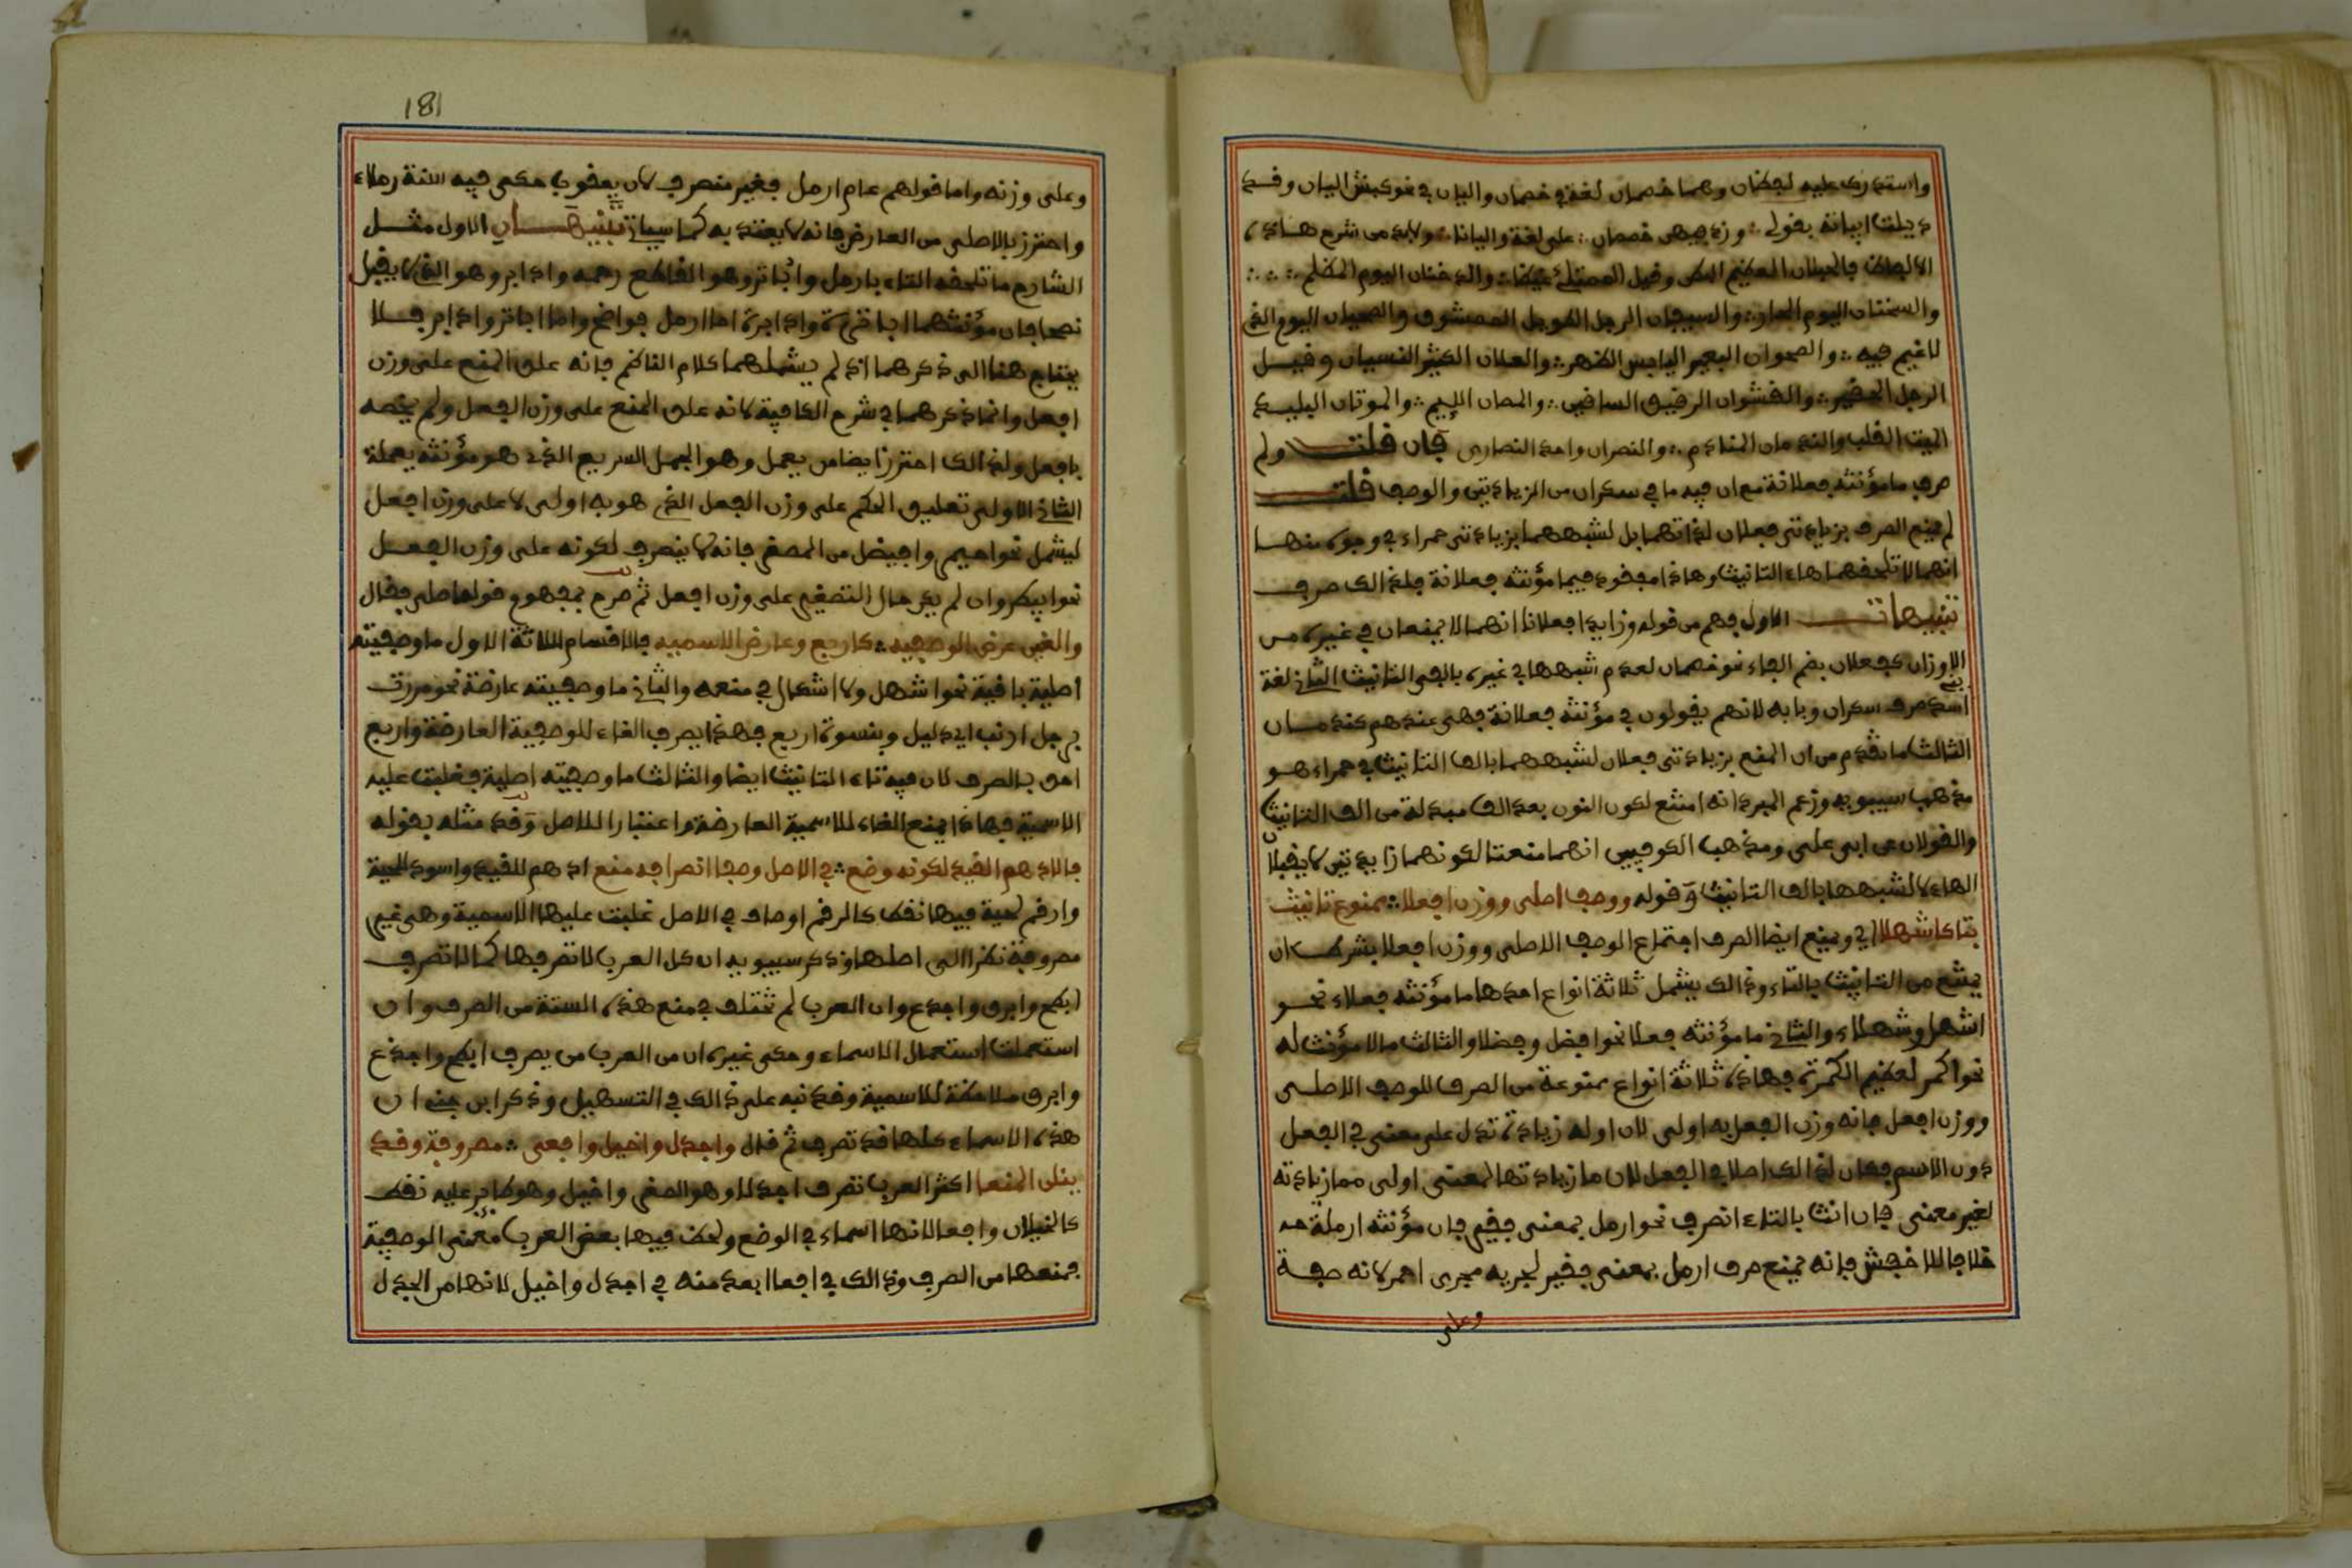 واستدرك عليه لفظان وهما خمصان لغة في خمصان واليان في نحو كبش اليان وقد
ذيلت ابياته بقولي ∴ وزد فيهن خمصان ∴ على لغة واليانا ∴ ولابد من شرح هذه
الالفاظ فالحبلان العظيم البطن وقيل الممتلئ غيظا ∴ والدخنان اليوم المظلم ∴
والسخنان اليوم الحار ∴ والسيفان الرجل الطويل الممشوق والصحيان اليوم الذي
لا غيم فيه ∴ والصوجان البعير اليابس الظهر ∴ والعلان الكثير النسيان وقيل
الرجل الحقير ∴ والقشوان الرقيق الساقين ∴ والمصان اللئيم ∴ والموتان البليد
الميت القلب والندمان المنادم ∴ والنصران واحد النصارى فان قلت ولم
صرف ما مؤنثه فعلانة مع ان فيه ما في سكران من الزيادتين والوصف قلت
لم يمنع الصرف بزيادتي فعلان لذاتهما بل لشبههما بزيادتي حمراء في وجوه منها
انهما لا تلحقهما هاء التانيث وهاذا مفقود فيما مؤنثه فعلانة فلذالك صرف
تنبيهات الاول فهم من قوله وزايدا فعلانا انهما لا يمنعان في غيره من
الاوزان كفعلان بضم الفاء نحو خمصان لعدم شبهها في غيره بالفي التانيث الثاني لغة
بني
اسد صرف سكران وبابه لانهم يقولون في مؤنثه فعلانة فهي عندهم كندمان
الثالث ما تقدم من ان المنع بزيادتي فعلان لشبههما بالف التانيث في حمراء هو
مذهب سيبويه وزعم المبرد انه امتنع لكون النون بعد الف مبدلة من الف التانيث
والقولان عن ابي علي ومذهب الكوفيين انهما منعتا لكونهما زايدتين لا يقبلان
الهاء لا لشبهها بالف التانيث وقوله ووصف اصلي ووزن افعلا ∴ ممنوع تانيث
بتا كاشهلا اي ويمنع ايضا الصرف اجتماع الوصف الاصلي ووزن افعل بشرط ان
يمتنع من التانيث بالتاء وذالك يشمل ثلاثة انواع احدها ما مؤنثه فعلاء نحو
اشهل وشهلاء والثاني ما مؤنثه فعلا نحو افضل وفضلا والثالث ما لا مؤنث له
نحو اكمر لعظيم الكمرة فهاذه ثلاثة انواع ممنوعة من الصرف للوصف الاصلي
ووزن افعل فانه وزن الفعل به اولى لان اوله زيادة تدل على معنى في الفعل
دون الاسم فكان لذالك اصلا في الفعل لان ما زيادتها لمعنى اولى مما زيادته
لغير معنى فان انث بالتاء انصرف نحو ارمل بمعنى فقير فان مؤنثه ارملة
خلافا للاخفش فانه يمنع صرف ارمل بمعنى فقير لجريه مجرى احمر لانه صفة
وعلى
181
وعلى وزنه واما قولهم عام ارمل فغير منصرف لان يعقوب حكى فيه سنة رملاء
واحترز بالاصلي من العارض فانه لا يعتد به كما سياتي تنبيهان الاول مثل
الشارح ما تلحقه التاء بارمل واباتر وهو القاطع رحمه واداير وهو الذي لا يقبل
نصحا فان مؤنثهما اباترة وادايرة اما ارمل فواضح واما اباتر واداير فلا
يحتاج هنا الى ذكرهما اذ لم يشملهما كلام الناظم فانه علق المنع على وزن
افعل وانما ذكرهما في شرح الكافية لانه علق المنع على وزن الفعل ولم يخصه
بافعل ولذالك احترز ايضا من يعمل وهو الجمل السريع الذي هو مؤنثه يعملة
الثاني الاولى تعليق الحكم على وزن الفعل الذي هو به اولى لا على وزن افعل
ليشمل نحو احيمر وافيضل من المصغر فانه لا ينصرف لكونه على وزن الفعل
نحو ابيطر وان لم يكن حال التصغير على وزن افعل ثم صرح بمفهوم قوله اصلي فقال
والغين عرض الوصفيه ∴ كاربع وعارض الاسميه فالاقسام ثلاثة الاول ما وصفيته
اصلية باقية نحو اشهل ولا اشكال في منعه والثاني ما وصفيته عارضة نحو مررت
برجل ارنب اي ذليل وبنسوة اربع فهذا يصرف الغاء للوصفية العارضة واربع
احق بالصرف لان فيه تاء التانيث ايضا والثالث ما وصفيته اصلية فغلبت عليه
الاسمية فهاذا يمنع الغاء للاسمية العارضة واعتبارا للاصل وقد مثله بقوله
فالادهم القيد لكونه وضع ∴ في الاصل وصفا انصرافه منع ادهم للقيد واسود للحية
وارقم لحية فيها نقط كالرقم اوصاف في الاصل غلبت عليها الاسمية وهي غير
مصروفة نظرا الى اصلها وذكر سيبويه ان كل العرب لا تصرفها كما لا تصرف
ابطح وابرق واجدع وان العرب لم تختلف في منع هذه الستة من الصرف وان
استعملت استعمال الاسماء وحكى غيره ان من العرب من يصرف ابطح واجدع
وابرق ملاحظة للاسمية وقد نبه على ذالك في التسهيل وذكر ابن جني ان
هذه الاسماء كلها قد تصرف ثم قال واجدل واخيل وافعى ∴ مصروفة وقد
ينلن المنعا اكثر العرب تصرف اجدلا وهو الصقر واخيل وهو طاير عليه نقط
كالخيلان وافعا لانها اسماء في الوضع ولحظ فيها بعض العرب معنى الوصفية
فمنعها من الصرف وذالك في افعا ابعد منه في اجدل واخيل لانهما من الجدل